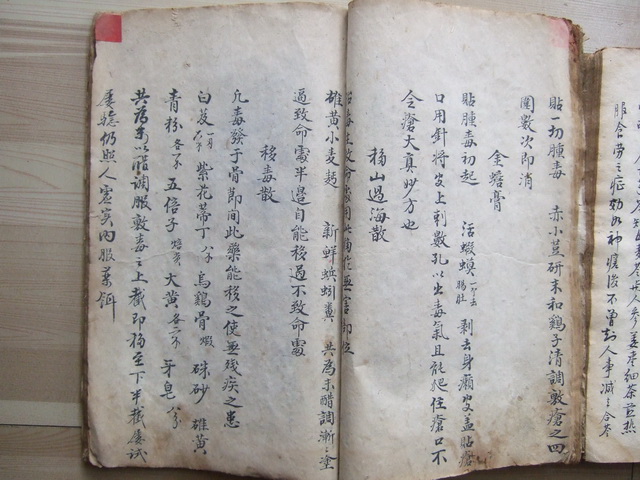 服合癆之症効如神痰後不曾
貼一切腫毒　赤小荳研末和鷄子清調敷瘡之四
圍數次即消
金蟾膏
貼腫毒初起　活蝦蟆一個去腸肚　剥去身癩皮盖貼瘡
口用針將皮上刺數孔以出毒氣且能爬住瘡口不
令瘡大真妙方也
移山過海散
雄黄小麥麵　新鮮蚯蚓糞　共為末醋調漸漸塗
逼致命處半邊自能移過不致命處
移毒散
凡毒發于骨節間此藥能移之使無殘疾之患
白芨　紫花蒂丁　烏鷄骨煅　硃砂　雄黄
青粉　五倍子　大黄　牙皂
共為末以醋調服敷毒之上截即移至下半截屢試
屢驗仍照人虚實内服薬餌